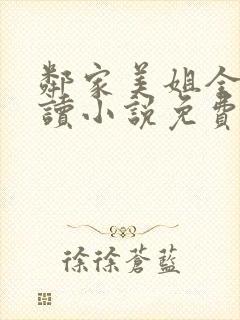 鄰家美姐全
讀小說免費
徐徐蒼藍